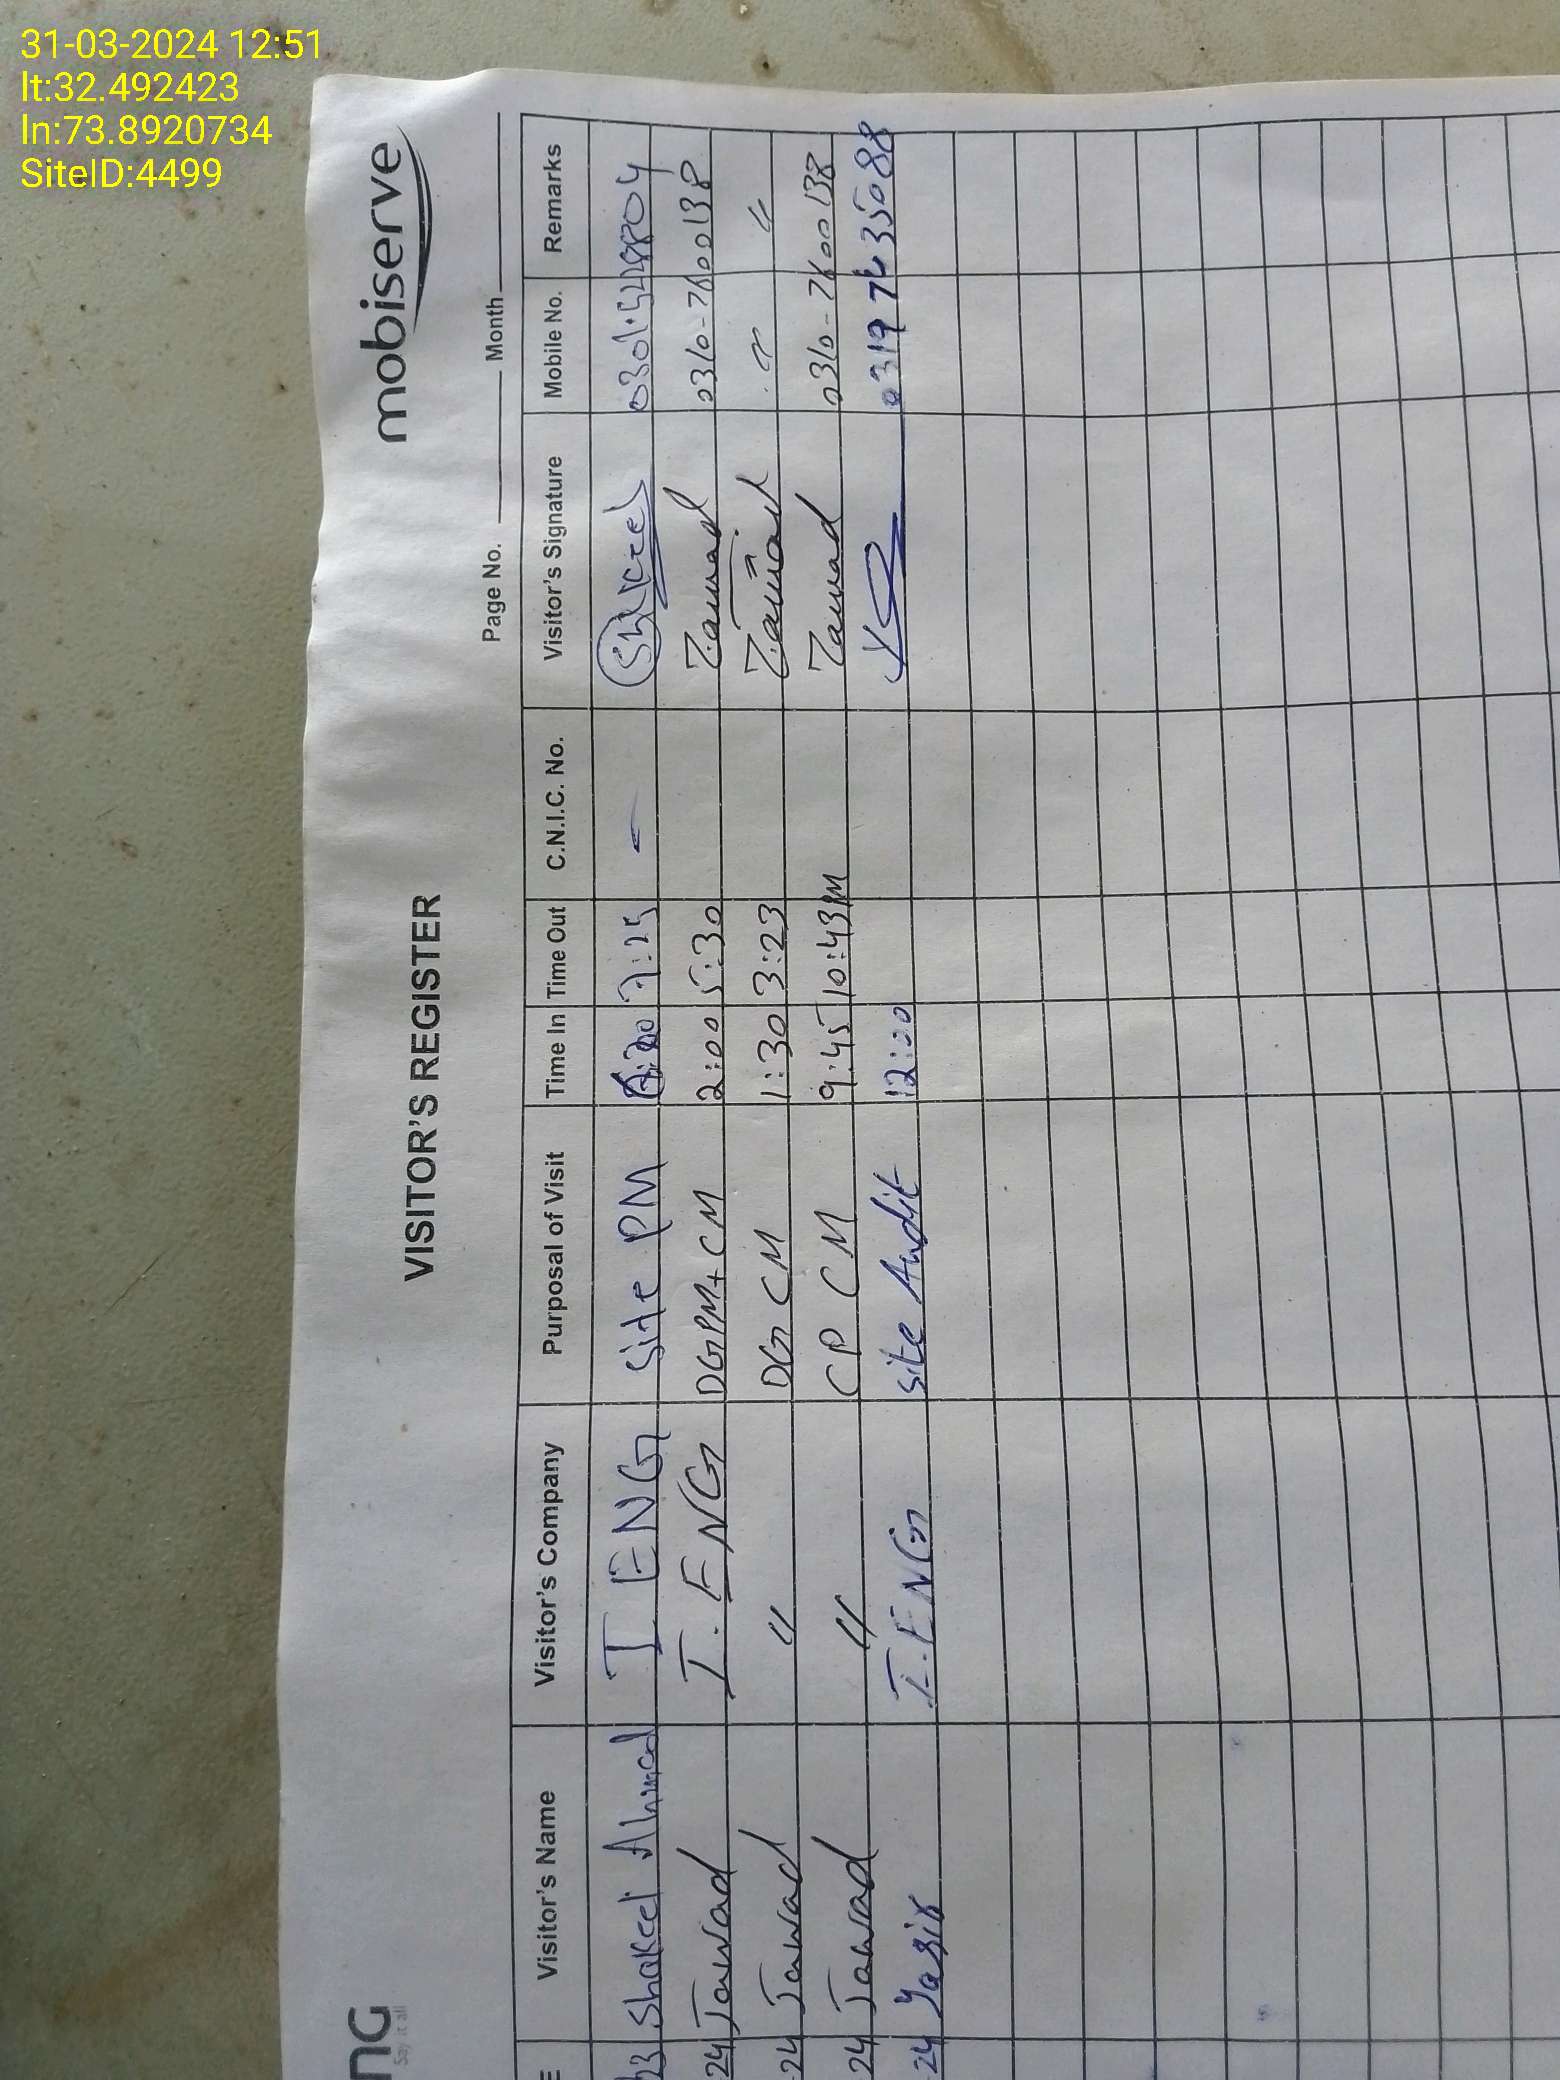 31-03-2024 12:51
lt:32.492423
ln:73.8920734
SiteID:4499
mobiserve
Say it all
VISITOR'S REGISTER
Page No. Month
Visitor's Name Visitor's Company Purposal of Visit Time In Time Out C.N.I.C. No. Visitor's Signature Mobile No. Remarks
23 Shakeel Ahmad T ENG Site PM 7:25 Shakeel
24 Jawad T.ENG DG PM+CM 2:00 5:30 Jawad 0310-7600138
24 Jawad " DG CM 1:30 3:23 Jawad " "
24 Jawad " CP CM 9:45 10:43 Jawad 0310-7600138
24 Yasir T.ENG Site Audit 12:00